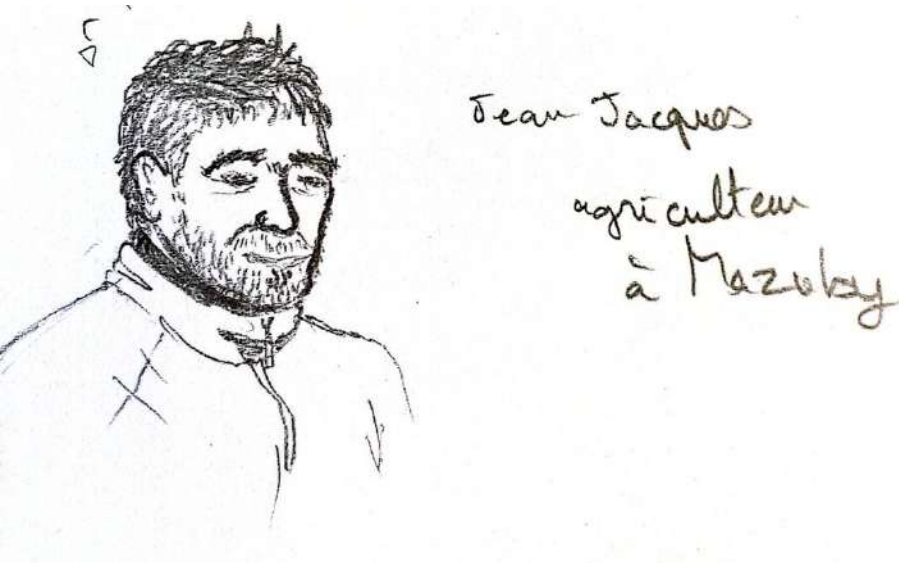 Jean Jacques
agriculteur
à Mazuby